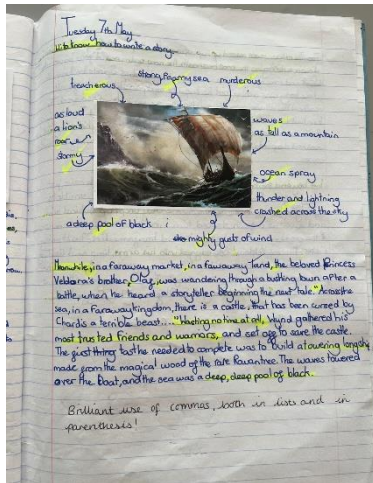 Tuesday 7th May
LI: to know how to write a story.
strong foamy sea
murderous
treacherous
as loud
a lion's
roar
stormy
waves
as tall as a mountain
ocean spray
thunder and lightning
crashed across the sky
a deep pool of black
mighty gusts of wind
Meanwhile, in a faraway market, in a faraway land, the beloved Princess
brother, Olaf, was wandering through a bustling town after a
battle, when he heard a storyteller beginning the next tale. "Across the
sea, in a faraway kingdom, there is a castle, that has been cursed by
a terrible beast...." Wasting no time at all, gathered his
most trusted friends and warriors, and set off to save the castle.
The first thing he needed to complete was to build a towering longship
made from the magical wood of the rare Rowan tree. The waves towered
over the boat, and the sea was a deep, deep pool of black.
Brilliant use of commas, both in lists and in
parenthesis!